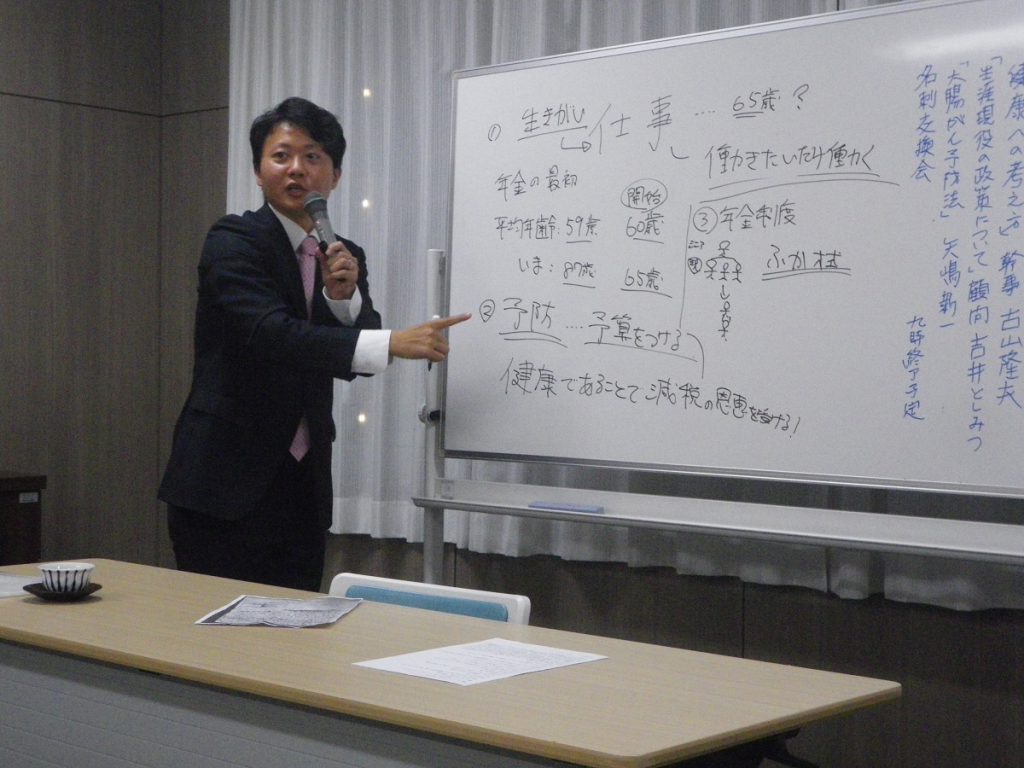 ① 生きがい
仕事 … 65歳?
働きたいだけ働く
年金の最初
開始
平均年齢:59歳 60歳
いま:87歳 65歳
③年金制度
ふか
②予防 … 予算をつける
健康であることで減税の恩恵を受ける!
健康への考え方」 幹事 古山隆夫
「生涯現役の政策について」 顧問 吉井としみつ
「大腸がん予防法」 矢嶋新一
名刺交換会
九時終了予定